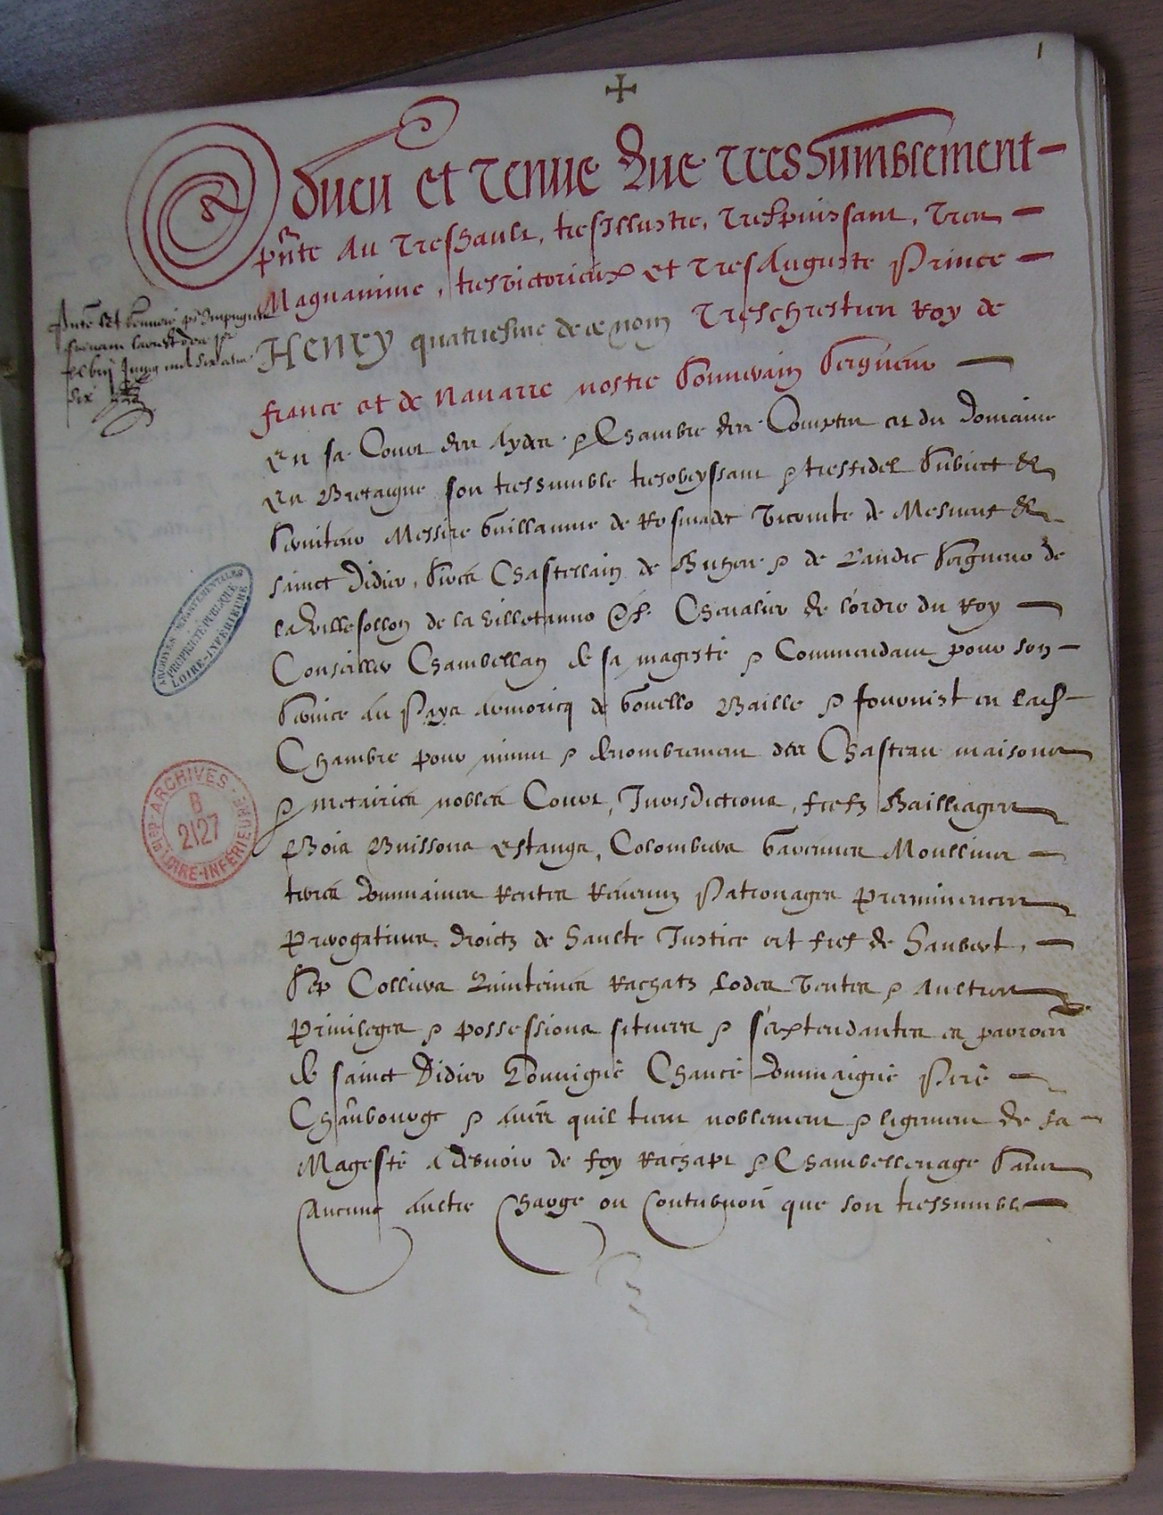 1
Adveu et tenue que tres humblement
pnte Au Treshault, tresillustre, Trespuissant, Tres
Magnanime, tresvictorieux et tresAuguste Prince
Henry quatriesme de ce nom Treschrestien Roy de
france et de Navarre nostre Souverain Seigneur
En sa Court des Aydes & Chambre des Comptes et du Domaine
En Bretaigne son treshumble tresobeyssant & tresfidel Subiect &
Serviteur Messire Guillaume de Rosmadec Viconte de Mesneuf &
sainct Didier, Sire Chastellain de Buhen & de Gaudic Seigneur de
la de la Chevalier de lordre du Roy
Conseiller Chambellan de sa magesté & Commendant pour son
Service au Pays Armoricq de Gouello Baille & fournist en lad
Chambre pour minu & denombrement des Chasteau maisons
& metairies nobles Court, Jurisdictions, fiefz Bailliages
Bois Buissons estangs, Colombiers Garennes Moullins
terres dommaines Rentes Revenuz Patronages Preeminences
Prerogatives droictz de haulte Justice et fief de haubert,
Sep Colliers Quintaines Rachatz Lodes Ventes & Aultres
Privileges & possessions situees & sextendantes en parroes
de sainct Didier Louvigné Chancé Dommaigné Piré
Chaubourge & Aues quil tient noblement & ligement de sa
Magesté a debvoir de foy Rachapt & Chambellenage Sans
Aucune Aultre Charge ou Contubuon que son treshumble
ARCHIVES DEPARTEMENTALES
PROPRIETE PUBLIQUE
LOIRE-INFERIEURE
ARCHIVES
B
2127
de la LOIRE-INFERIEURE